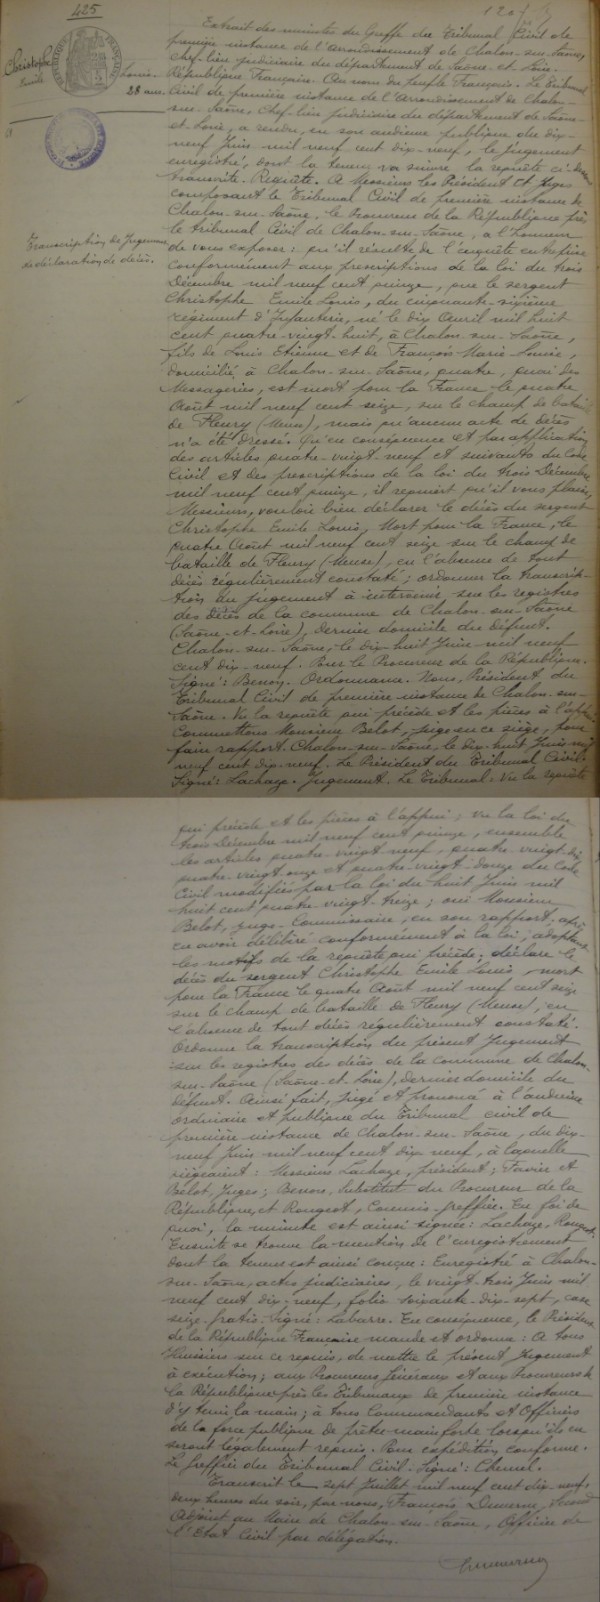 425
Christophe
Emile
Louis
28 ans.
Transcription de Jugement
de déclaration de décès.
Extrait des minutes du Greffe du Tribunal Civil de
première instance de l'arrondissement de Chalon-sur-Saône,
chef-lieu judiciaire du département de Saône-et-Loire.
République Française. Au nom du peuple Français. Le Tribunal
Civil de première instance de l'arrondissement de Chalon-
sur-Saône, chef-lieu judiciaire du département de Saône-
et-Loire, a rendu, en son audience publique du dix-
neuf Juin mil neuf cent dix-neuf, le jugement
enregistré, dont la teneur va suivre, la requête ci-dessus
transcrite. Requête. A Messieurs les Président et Juges
composant le Tribunal Civil de première instance de
Chalon-sur-Saône, le Procureur de la République près
le tribunal Civil de Chalon-sur-Saône, a l'honneur
de vous exposer: qu'il résulte de l'enquête entreprise
conformément aux prescriptions de la loi du trois
Décembre mil neuf cent quinze, que le sergent
Christophe Emile Louis, du cinquante-sixième
régiment d'Infanterie, né le dix Avril mil huit
cent quatre-vingt-huit, à Chalon-sur-Saône,
fils de Louis Etienne et de François Marie Louise,
domicilié à Chalon-sur-Saône, quatre, quai des
Messageries, est mort pour la France le quatre
Août mil neuf cent seize, sur le champ de bataille
de Fleury (Meuse), mais qu'aucun acte de décès
n'a été dressé. Qu'en conséquence et par application
des articles quatre-vingt-neuf et suivants du Code
Civil et des prescriptions de la loi du trois Décembre
mil neuf cent quinze, il requiert qu'il vous plaise,
Messieurs, vouloir bien déclarer le décès du sergent
Christophe Emile Louis, Mort pour la France, le
quatre Août mil neuf cent seize sur le champ de
bataille de Fleury (Meuse), en l'absence de tout
décès régulièrement constaté; ordonner la transcrip-
tion du jugement à intervenir sur les registres
des décès de la commune de Chalon-sur-Saône
(Saône-et-Loire), dernier domicile du défunt.
Chalon-sur-Saône, le dix-huit Juin mil neuf
cent dix-neuf. Pour le Procureur de la République.
Signé: Benon. Ordonnance. Nous, Président du
Tribunal Civil de première instance de Chalon-sur-
Saône. Vu la requête qui précède et les pièces à l'appui
Commettons Monsieur Belot, juge en ce siège, pour
faire rapport. Chalon-sur-Saône, le dix-huit Juin mil
neuf cent dix-neuf. Le Président du Tribunal Civil.
Signé: Lachaze. Jugement. Le Tribunal: Vu la requête
qui précède et les pièces à l'appui; vu la loi du
trois Décembre mil neuf cent quinze, ensemble
les articles quatre-vingt-neuf, quatre-vingt-dix,
quatre-vingt-onze et quatre-vingt-douze du Code
Civil modifiés par la loi du huit Juin mil
huit cent quatre-vingt-treize; oui Monsieur
Belot, juge-Commissaire, en son rapport, après
en avoir délibéré conformément à la loi; adoptant
les motifs de la requête qui précède, déclare le
décès du sergent Christophe Emile Louis, mort
pour la France le quatre Août mil neuf cent seize
sur le champ de bataille de Fleury (Meuse), en
l'absence de tout décès régulièrement constaté.
Ordonne la transcription du présent Jugement
sur les registres des décès de la commune de Chalon-
sur-Saône (Saône-et-Loire), dernier domicile du
défunt. Ainsi fait, jugé et prononcé à l'audience
ordinaire et publique du Tribunal civil de
première instance de Chalon-sur-Saône, du dix-
neuf Juin mil neuf cent dix neuf, à laquelle
siégeaient: Messieurs Lachaze, président; Favier et
Belot, Juges; Benon, Substitut du Procureur de la
République, et Rougeot, Commis-greffier. En foi de
quoi, la minute est ainsi signée: Lachaze, Rougeot.
Ensuite se trouve la mention de l'enregistrement
dont la teneur est ainsi conçue: Enregistré à Chalon-
sur-Saône, actes judiciaires, le vingt-trois Juin mil
neuf cent dix-neuf, folio soixante-dix-sept, case
seize. gratis. Signé: Labarre. En conséquence, le Président
de la République Française mande et ordonne: A tous
Huissiers sur ce requis, de mettre le présent Jugement
à exécution; aux Procureurs Généraux et aux Procureurs de
la République près les Tribunaux de première instance
d'y tenir la main; à tous Commandants et Officiers
de la force publique de prêter main forte lorsqu'ils en
seront légalement requis. Pour expédition conforme.
Le Greffier du Tribunal Civil. Signé: Chenel.
Transcrit le sept Juillet mil neuf cent dix-neuf,
deux heures du soir, par nous, François Dumerne, Second
Adjoint au Maire de Chalon-sur-Saône, Officier de
l'Etat Civil par délégation.